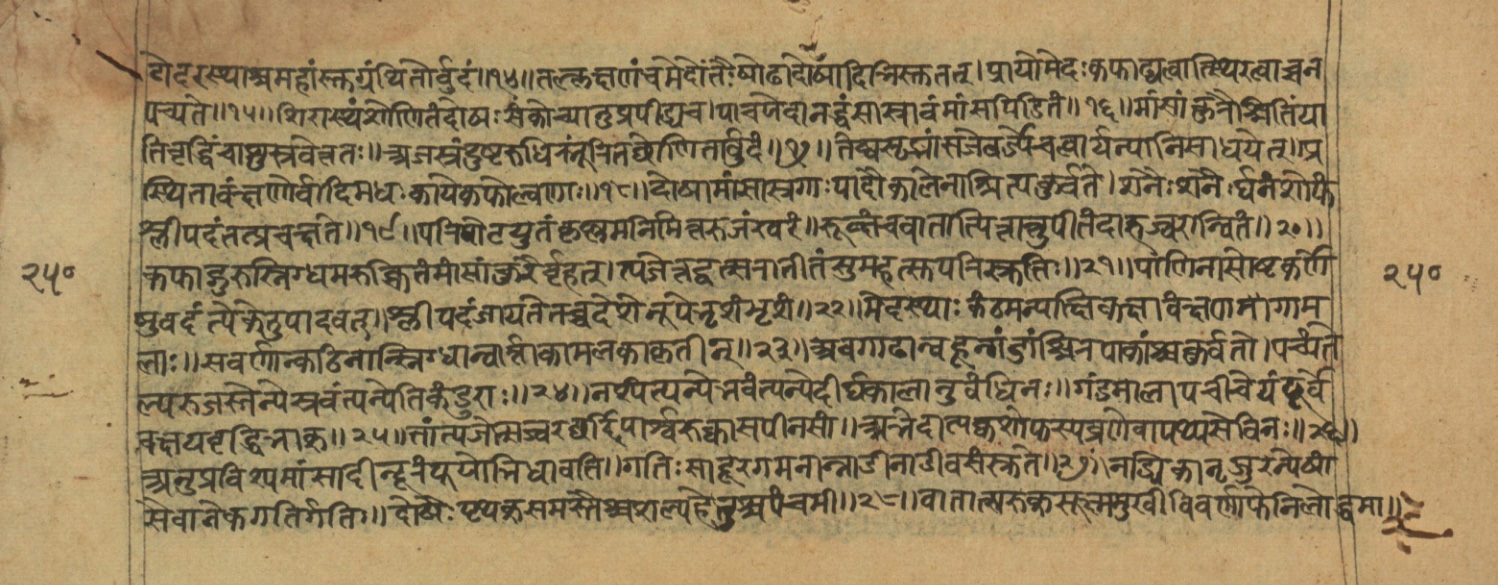 मेदरस्थाश्ममहांस्तग्रंथितोर्बुदं॥१४॥तल्लक्षणंचमेदोंतैःषोढादोषादिभिस्ततत्।प्रायोमेदःकफाढ्यत्वात्स्थिरत्वाच्चन
पच्यते॥१५॥शिरास्थंशोणितंदोषःसंकोच्यातुप्रपीड्यच।पाचयेदानद्धंसास्त्रावंमांसपिंडितं॥१६॥मांसांकुरैश्चितिंया
तिवृद्धिंचाशुस्त्रवेत्ततः॥अजस्त्रंदुष्टरुधिरंभूरितच्छोणितार्बुदं॥१७॥तेष्वसृग्मांसजेवर्ज्येचत्वार्यन्यानिसाधयेत्।प्र
स्थितावंक्षणोर्वादिमधःकायंकफोल्वणाः॥१८॥दोषामांसास्त्रगाःपादौकालेनाश्रित्यकुर्वते।शनैःशनैर्घनंशोफं
श्लीपदंतत्प्रचक्षते॥१९॥परिपोटयुतंकृष्णमनिमित्तरुजंखरं॥रूक्षंचवातात्पित्तात्तुपीतंदाहज्वरान्वितं॥२०॥
२५०
कफाद्गुरुस्निग्धमरुक्चितंमांसांकुरैर्बृहत्।त्यजेत्तद्वत्सरातीतंसुमहत्सुपरिस्त्रुति॥२१॥पाणिनासौष्टकर्णे
२५०
षुवदंत्येकेतुपादवत्।श्लीपदंजायतेतच्चदेशेनूपेभृशंभृशं॥२२॥मेदस्थाःकंठमन्याक्षिकक्षावंक्षणगाम
लाः॥सवर्णान्कठिनान्स्निग्धान्वार्त्ताकामलकाकृतीन्॥२३॥अवगाढान्बहून्गंडांश्चिरपाकांश्चकुर्वते।पच्यंते
ल्परुजस्त्वन्येस्त्रवंत्यन्येतिकंडुराः॥२४॥नश्यंत्यन्येभवंत्यन्येदीर्घकालानुबंधिनः॥गंडमालापचीचेयंदूर्वे
वक्षयवृद्धिभाक्॥२५॥तांत्यजेत्सज्वरछर्दिपार्श्वरुक्कासपीनसां॥अभेदात्पक्वशोफस्यव्रणेवापथ्यसेविनः॥२६॥
अनुप्रविश्यमांसादीन्दूरंपूयोभिधावति॥गतिःसादूरगमनान्नाडीनाडीवसंस्त्रुते॥२७॥नाड्येकानृजुरन्येषां
सैवानेकगतिर्गतिः॥दोषैःपृथक्समस्तैश्चशल्यहेतुश्चपंचमी॥२८॥वातात्सरुक्सूक्ष्ममुखीविवर्णाफेनिलोद्वमा॥